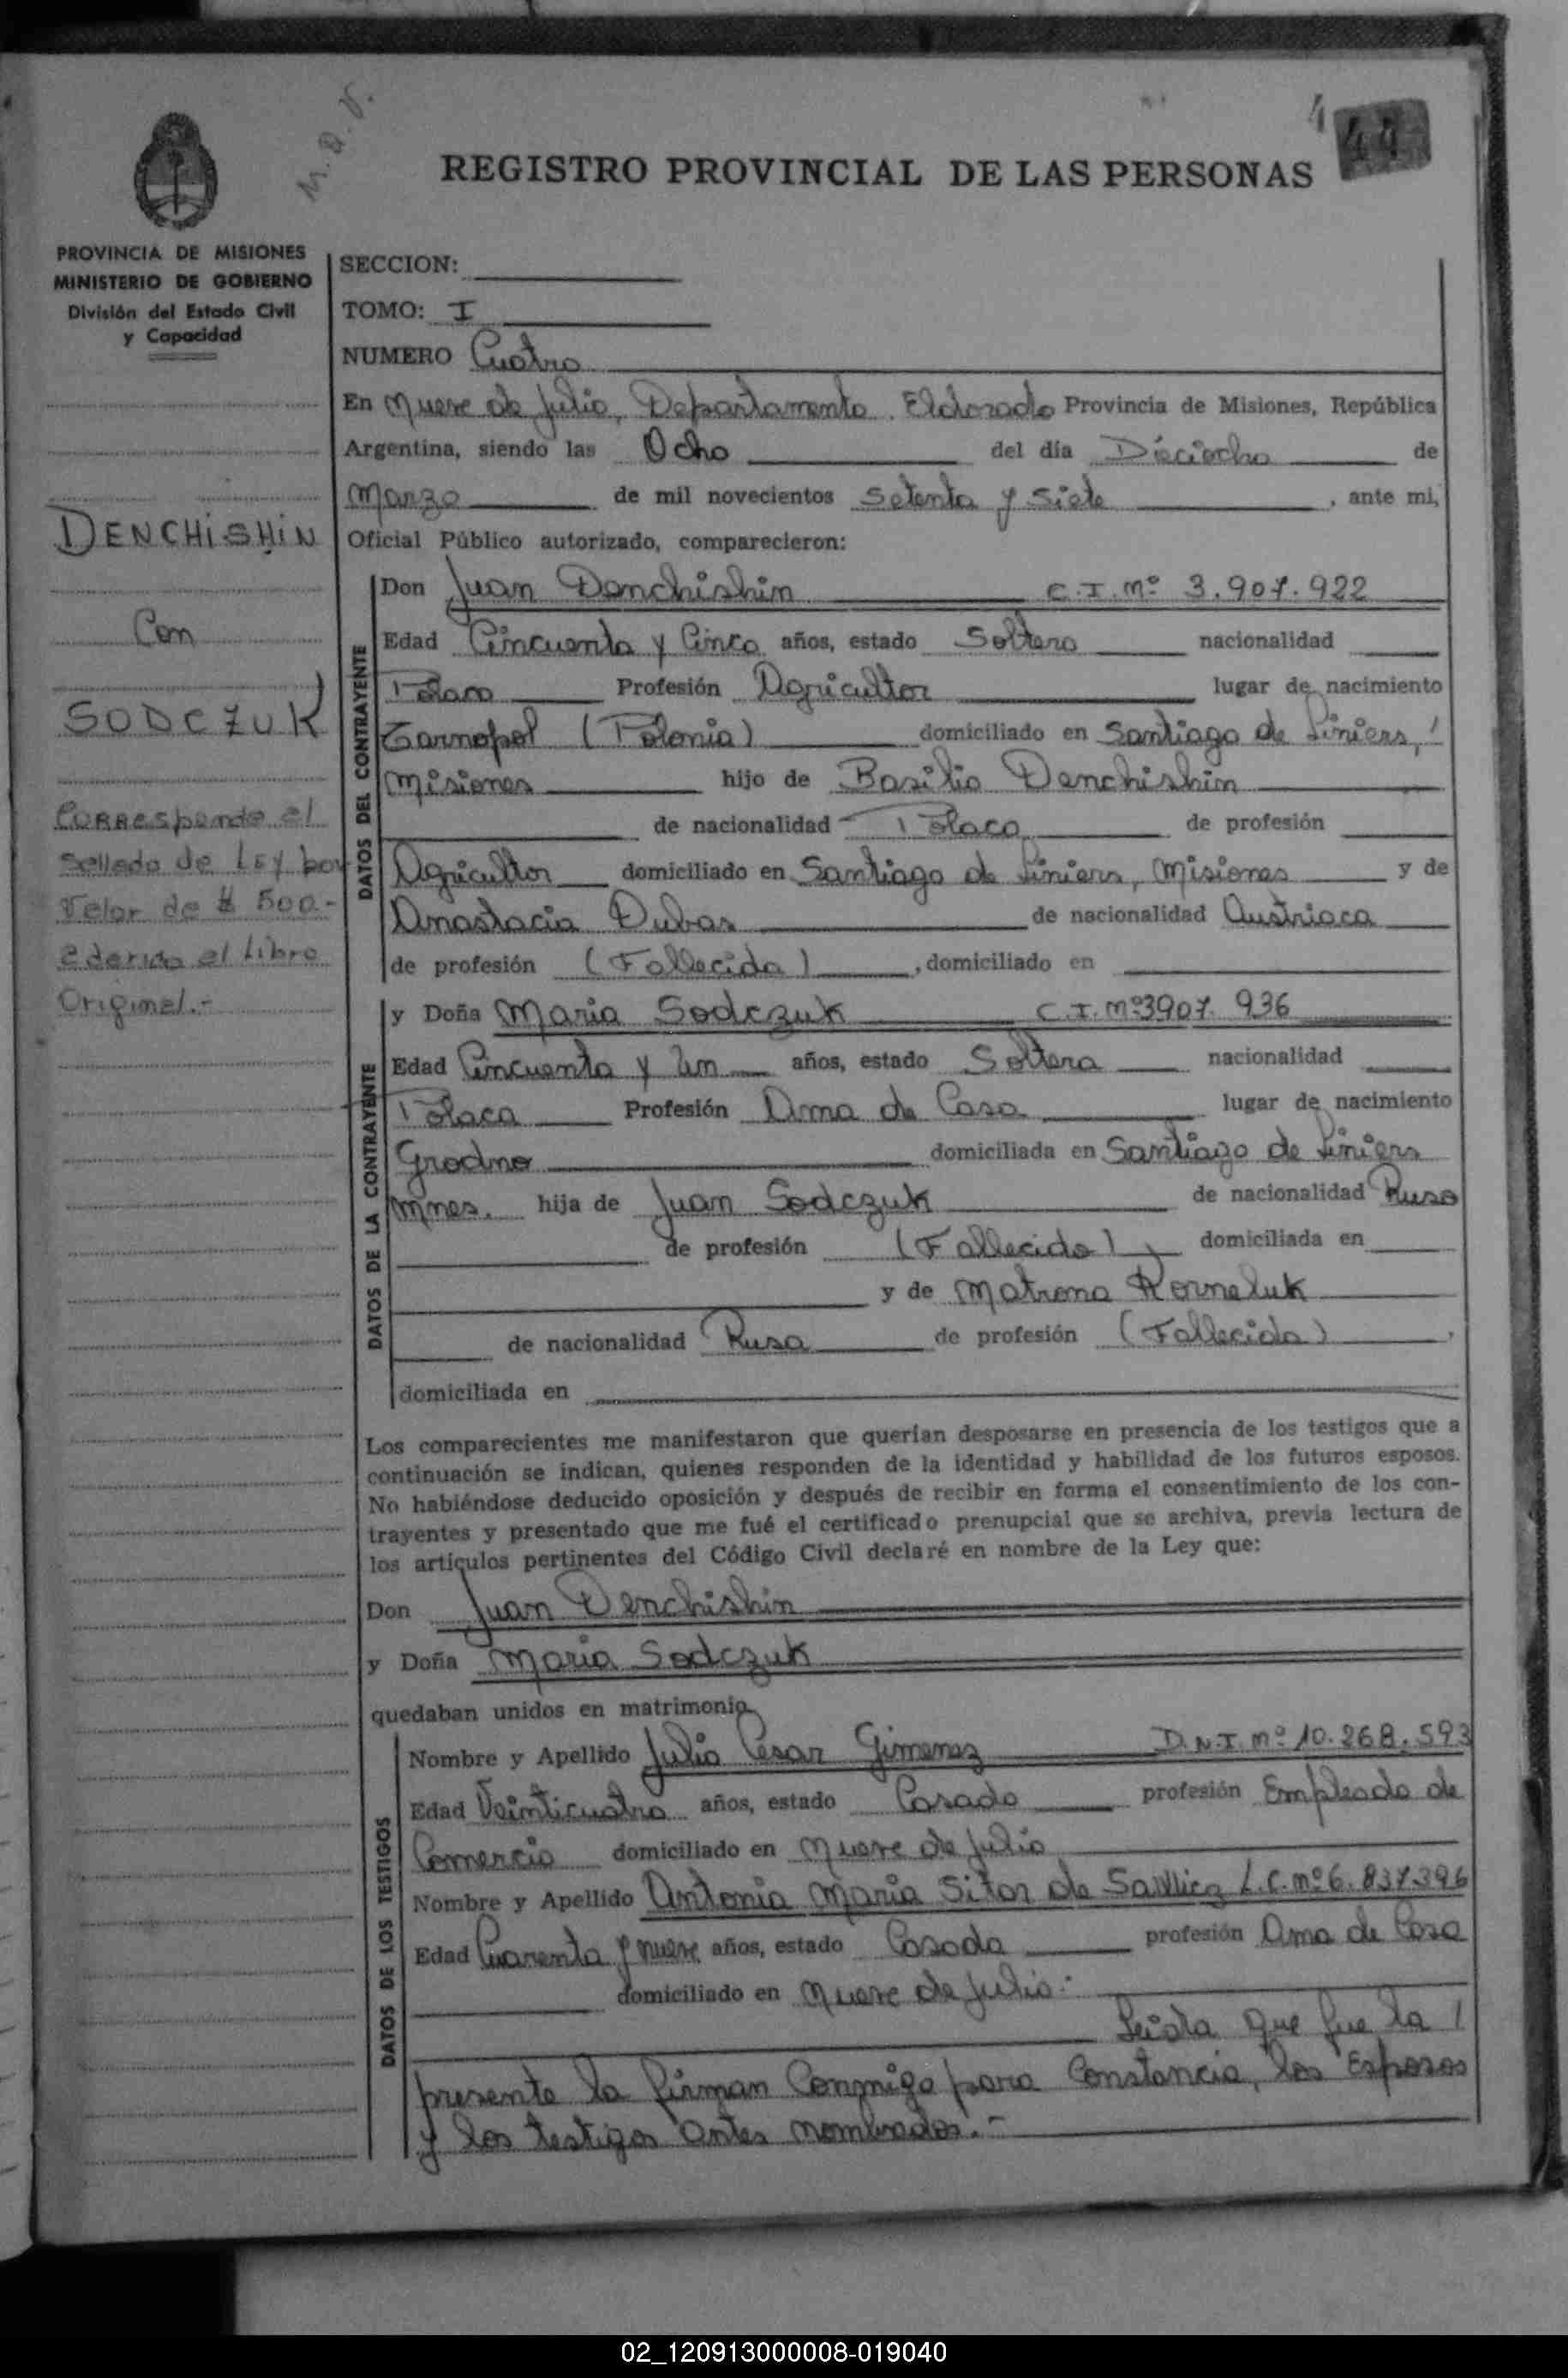 M. a. V.
4
44
REGISTRO PROVINCIAL DE LAS PERSONAS
PROVINCIA DE MISIONES
MINISTERIO DE GOBIERNO
División del Estado Civil
y Capacidad
DENCHiSHiN
Con
SODCZUK
Corresponde el
Sellado de LEY por
Velor de $ 500.-
ederido el Libro
Original.-
SECCION:
TOMO: I
NUMERO Cuatro
En Nueve de Julio, Departamento Eldorado Provincia de Misiones, República
Argentina, siendo las Ocho del día Dieciocho de
Marzo de mil novecientos Setenta y Siete, ante mi,
Oficial Público autorizado, comparecieron:
DATOS DEL CONTRAYENTE
Don Juan Denchishin C.I. Nº 3.907.922
Edad Cincuenta y Cinco años, estado Soltero nacionalidad
Polaco Profesión Agricultor lugar de nacimiento
Tarnopol (Polonia) domiciliado en Santiago de Liniers,
Misiones hijo de Basilio Denchishin
de nacionalidad Polaco de profesión
Agricultor domiciliado en Santiago de Liniers, Misiones y de
Anastacia Dubas de nacionalidad Austriaca
de profesión (Fallecida), domiciliado en
DATOS DE LA CONTRAYENTE
y Doña Maria Sodczuk C.I. Nº 3907.936
Edad Cincuenta y Un años, estado Soltera nacionalidad
Polaca Profesión Ama de Casa lugar de nacimiento
Grodno domiciliada en Santiago de Liniers
Mnes. hija de Juan Sodczuk de nacionalidad Rusa
de profesión (Fallecido), domiciliada en
y de Matrona Korneluk
de nacionalidad Rusa de profesión (Fallecida),
domiciliada en
Los comparecientes me manifestaron que querían desposarse en presencia de los testigos que a
continuación se indican, quienes responden de la identidad y habilidad de los futuros esposos.
No habiéndose deducido oposición y después de recibir en forma el consentimiento de los con-
trayentes y presentado que me fué el certificado prenupcial que se archiva, previa lectura de
los artículos pertinentes del Código Civil declaré en nombre de la Ley que:
Don Juan Denchishin
y Doña Maria Sodczuk
quedaban unidos en matrimonio
DATOS DE LOS TESTIGOS
Nombre y Apellido Julio Cesar Gimenez D.N.I. Nº 10.268.593
Edad Veinticuatro años, estado Casado profesión Empleado de
Comercio domiciliado en Nueve de Julio
Nombre y Apellido Antonia Maria Sitor de L.C. Nº 6.837.396
Edad Cuarenta y nueve años, estado Casada profesión Ama de Casa
domiciliado en Nueve de Julio.-
Leida que fue la
presente la firman Conmigo para Constancia, los Esposos
y los testigos antes nombrados.-
02_120913000008-019040